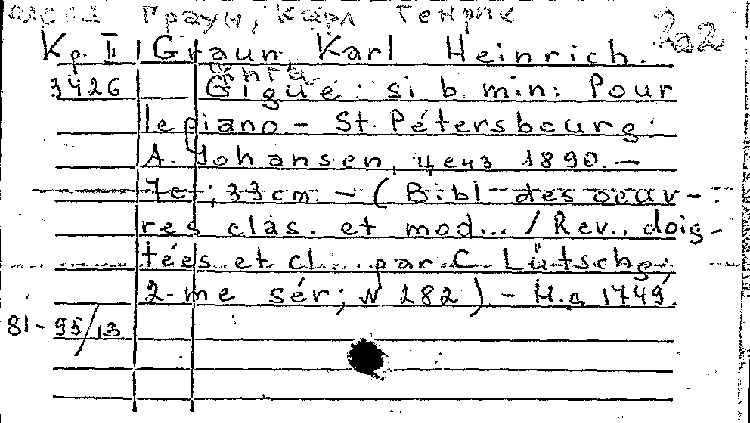 Граун, Карл Генрих
Кр. II Graun, Karl Heinrich.
3426 Gigue: si b. min: Pour
le piano - St. Pétersbourg:
A. Johansen, ценз 1890. -
7 c.; 33 cm. - (Bibl. des oeuv-
res clas. et mod... / Rev., doig-
tées et cl... par C. Lütschg;
2-me sér; N 182) - Н.д. 1749.
81-95/13